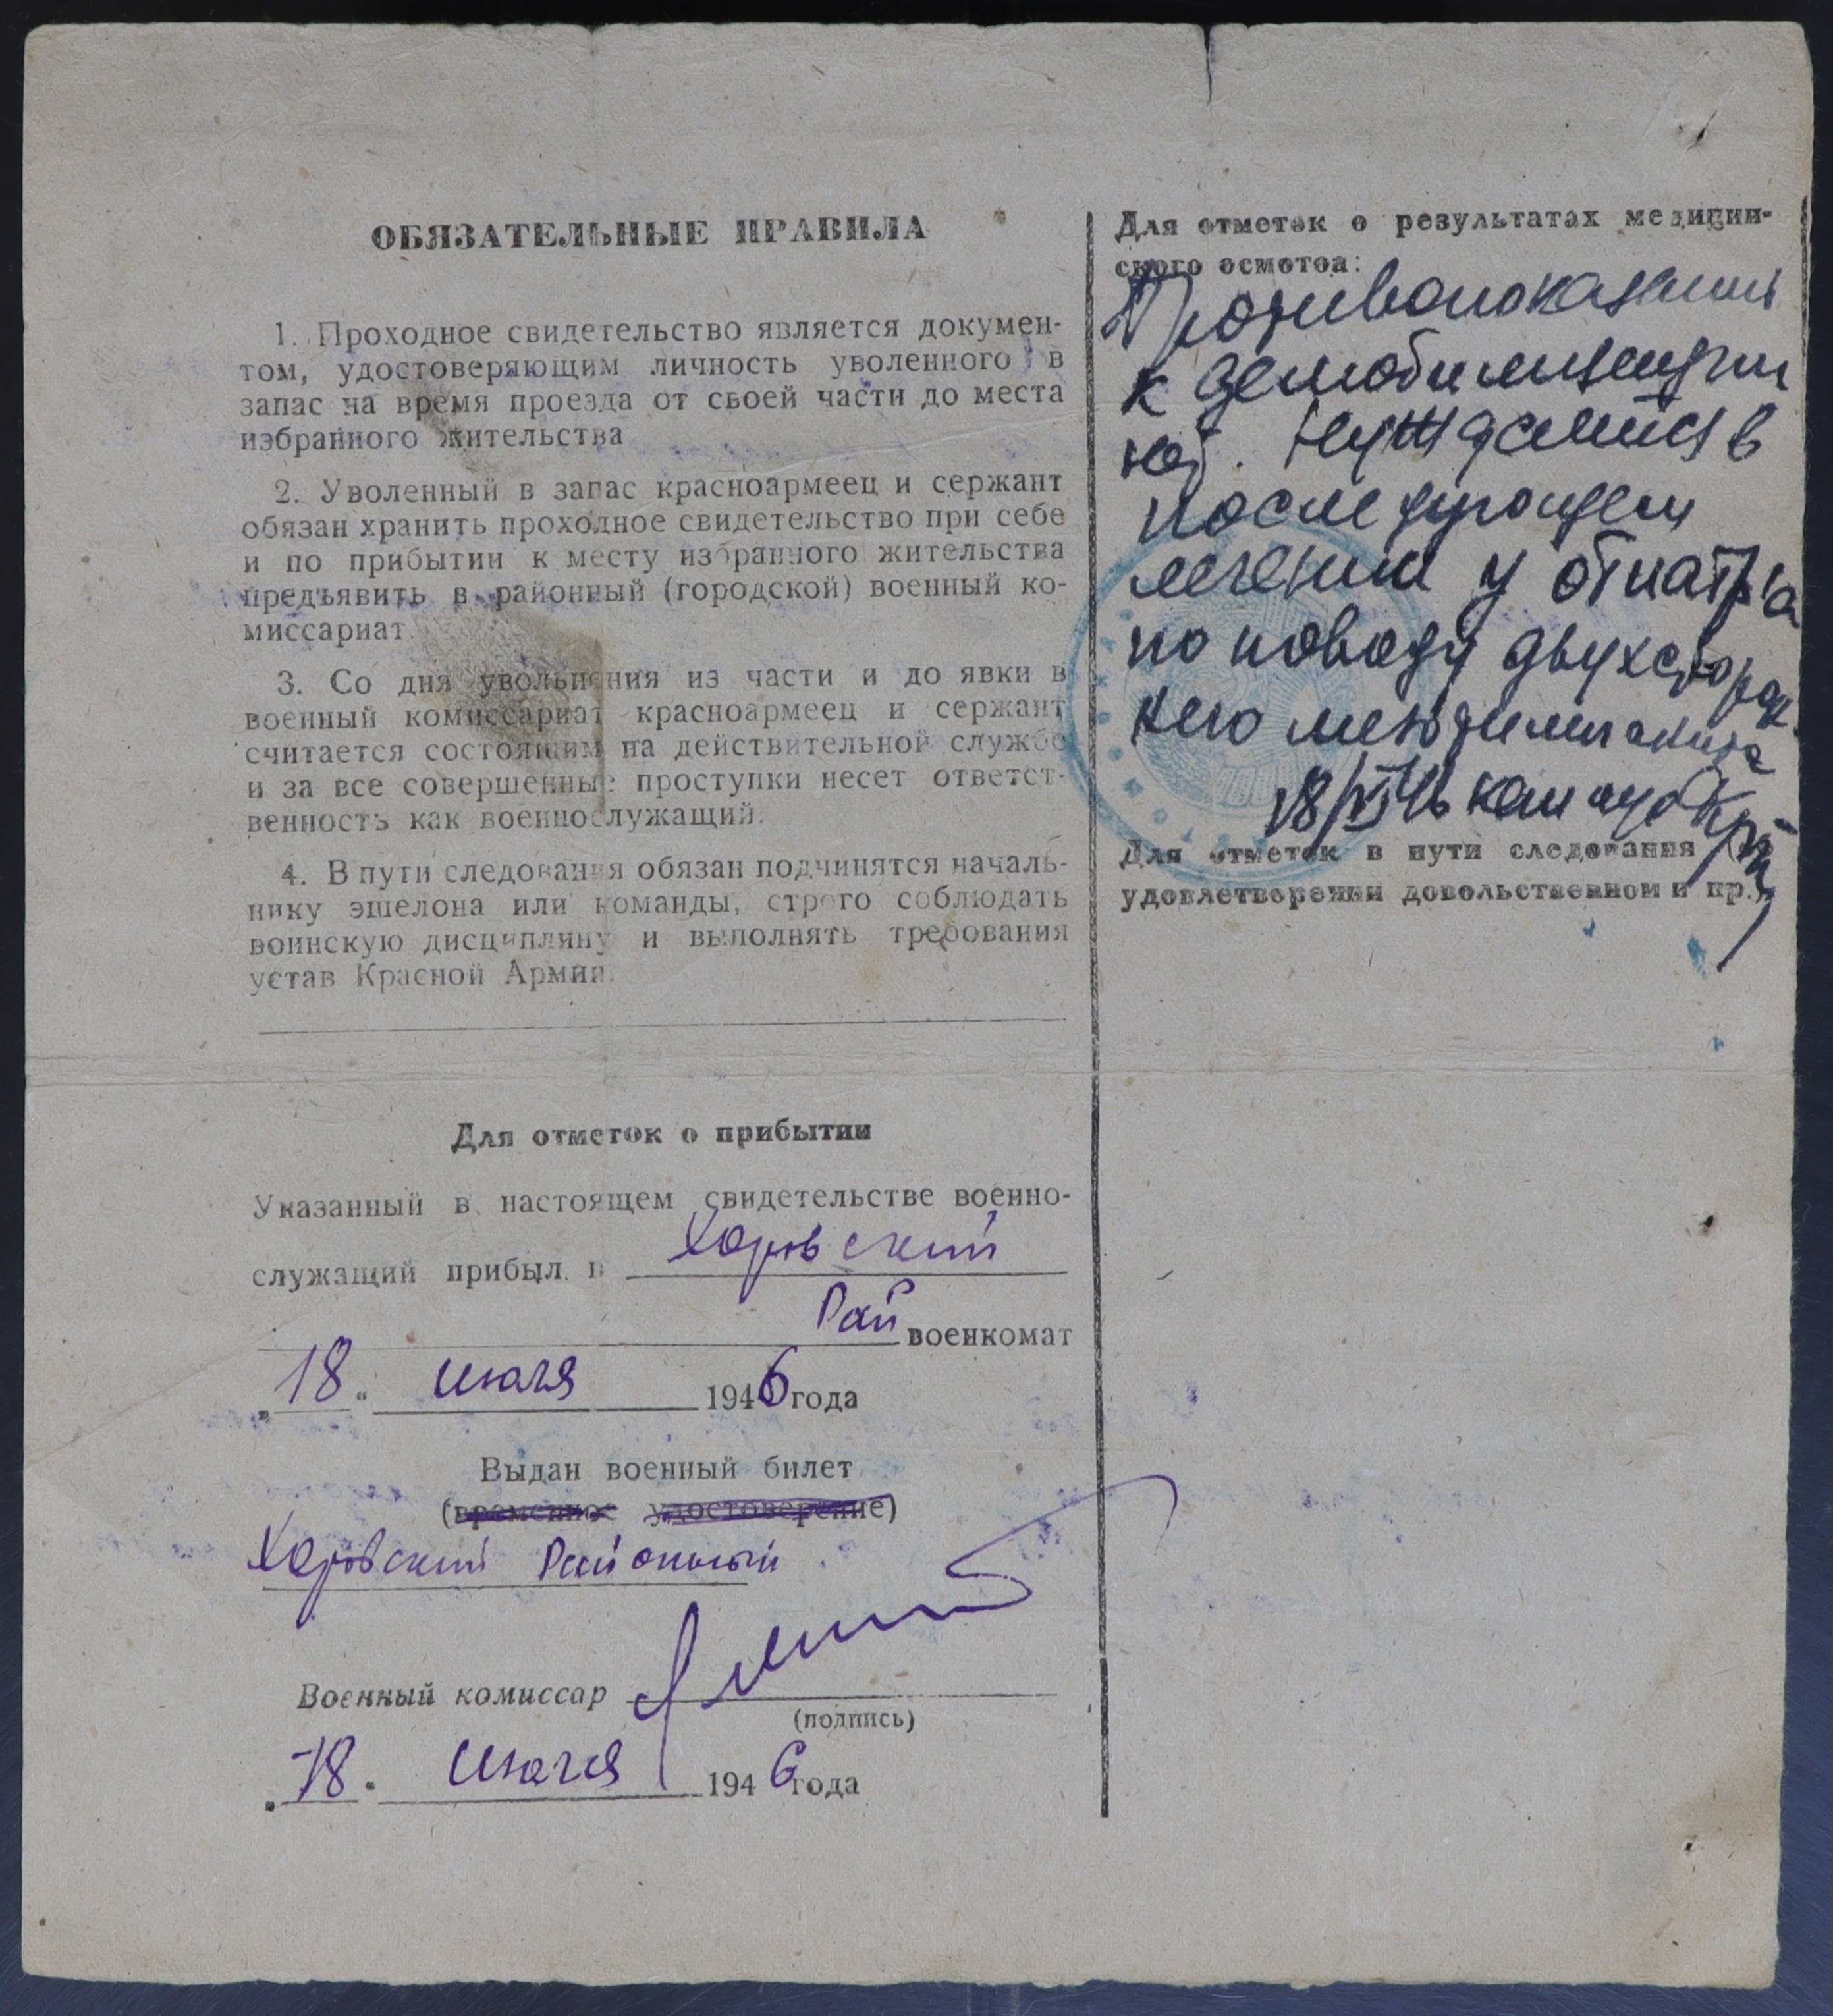 ОБЯЗАТЕЛЬНЫЕ ПРАВИЛА
1. Проходное свидетельство является докумен-
том, удостоверяющим личность уволенного в
запас на время проезда от своей части до места
избранного жительства
2. Уволенный в запас красноармеец и сержант
обязан хранить проходное свидетельство при себе
и по прибытии к месту избранного жительства
предъявить в районный (городской) военный ко-
миссариат.
3. Со дня увольнения из части и до явки в
военный комиссариат красноармеец и сержант
считается состоящим на действительной службе
и за все совершенные проступки несет ответст-
венность как военнослужащий.
4. В пути следования обязан подчинятся началь-
нику эшелона или команды, строго соблюдать
воинскую дисциплину и выполнять требования
устав Красной Армии.
Для отметок о прибытии
Указанный в настоящем свидетельстве военно-
служащий прибыл в Харовский
Рай военкомат
„18“ июля 1946 года
Выдан военный билет
(временное удостоверение)
Харовский Районный
Военный комиссар
(подпись)
„18“ июля 1946 года
Для отметок о результатах медицин-
ского осмотоа:
Противопоказаний
к демобилизации
нет. Нуждается в
последующем
лечении у отиатра
по поводу двухсторон
него мезотимпанита
18/VI 46 кап м/с
Для отметок в пути следования
удовлетворении довольствием и пр.)